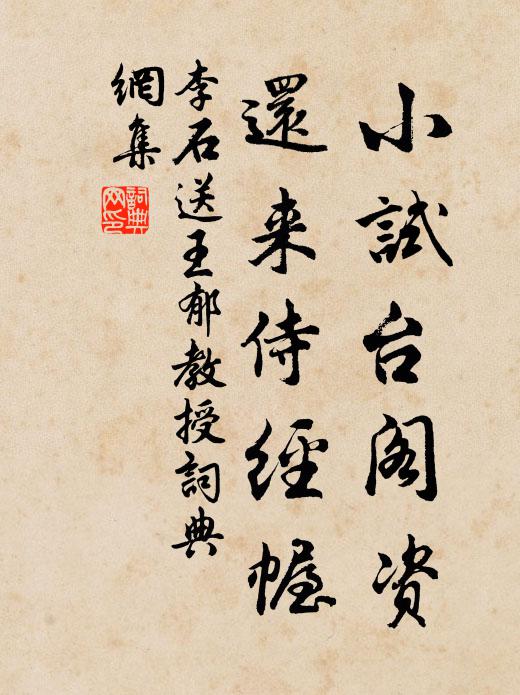 小試台阁资
還来侍經幄
李石送王郁教授詞典
網集
詞典
网印